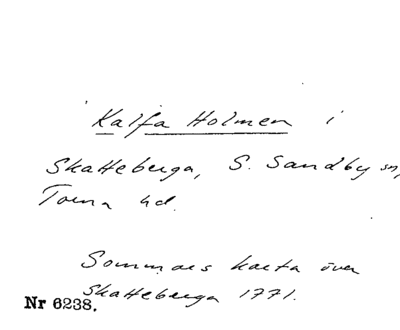 Kalfa Holmen i
Skatteberga, S. Sandby sn,
Torna hd.
Sommars karta över
Skatteberga 1771.
Nr 6238.